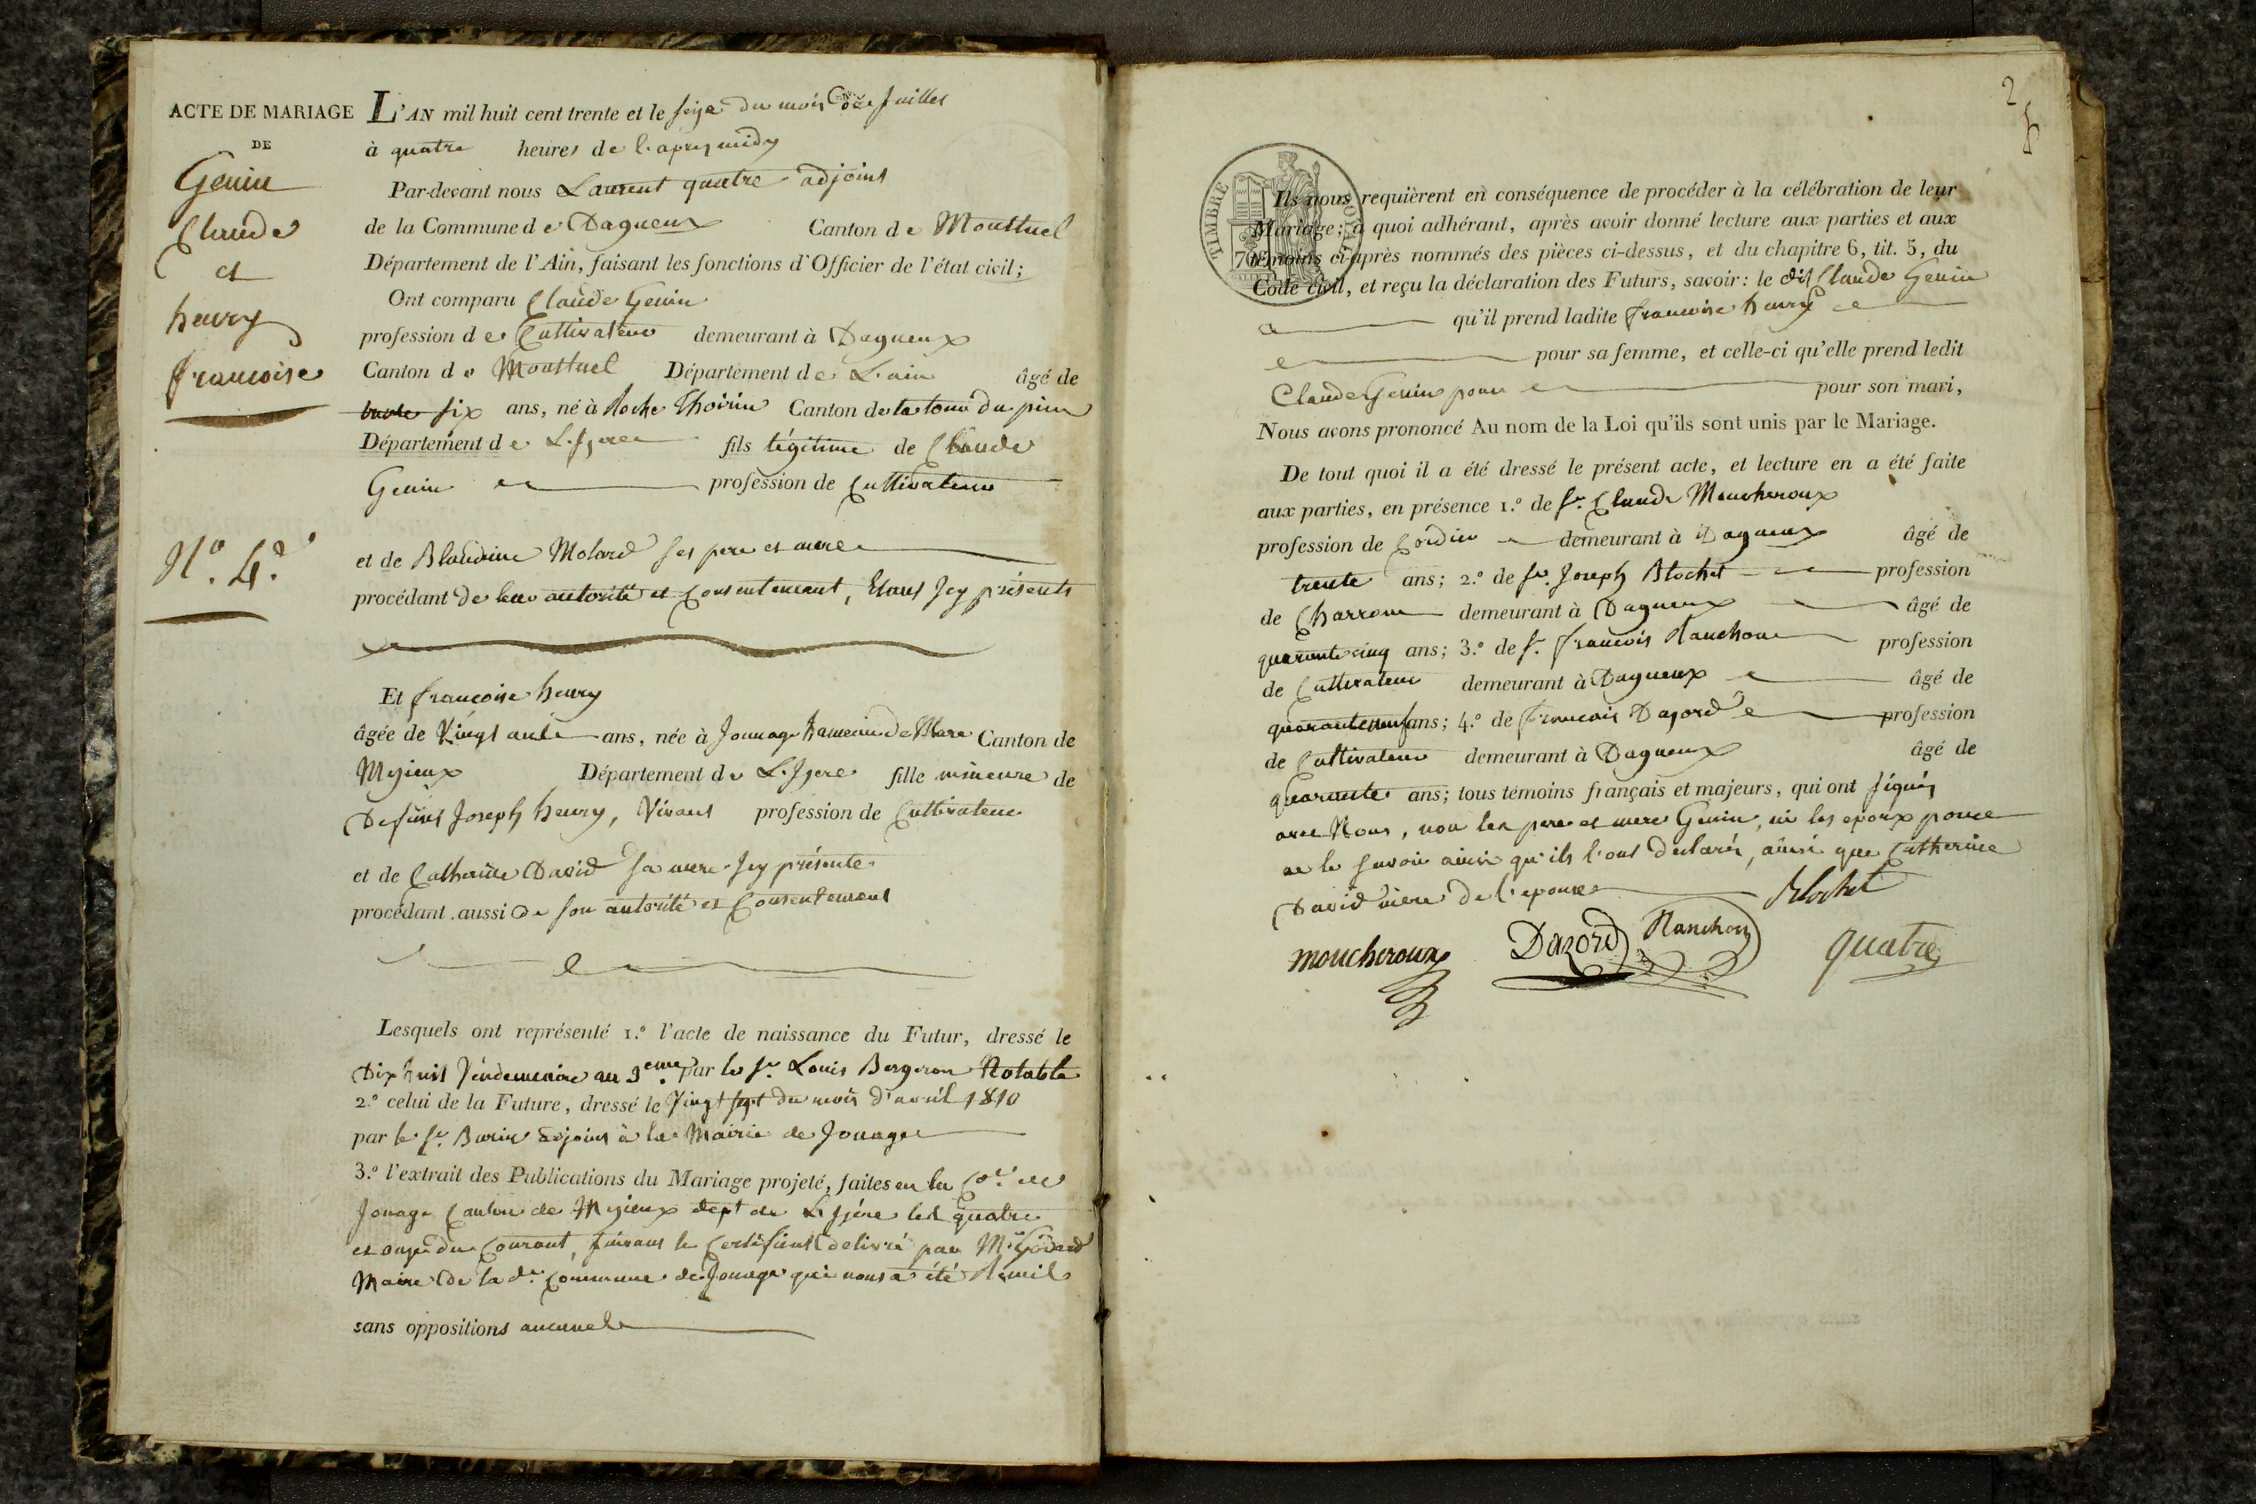 ACTE DE MARIAGE
DE
Genin
Claude
et
henry
françoise
N.º 4.e
L'AN mil huit cent trente et le seize du mois de Juillet
à quatre heures de l'apres midy
Par-devant nous Laurent quatre adjoint
de la Commune de Dagneux Canton de Montluel
Département de l'Ain, faisant les fonctions d'Officier de l'état civil;
Ont comparu Claude Genin
profession de Cultivateur demeurant à Dagneux
Canton de Montluel Département de L'ain âgé de
trente six ans, né à Roche Thoirin Canton de la tour du pin
Département de L'Isere fils légitime de Claude
Genin profession de Cultivateur
et de Blandine Molard ses pere et mere
procédant de leur autorité et Consentement, Etant Icy présents
Et françoise henry
âgée de Vingt ans, née à Jonage hameau de Canton de
Meyzieux Département de L'Isere fille mineure de
Defunt Joseph henry, Vivant profession de Cultivateur
et de Catherine David Sa mere Icy présente
procédant aussi de son autorité et Consentement
Lesquels ont représenté 1.º l'acte de naissance du Futur, dressé le
Dix huit Vendemiaire an 3eme. par le Sr. Louis Bergeron Notable
2.º celui de la Future, dressé le Vingt sept du mois d'avril 1810
par le Sr. Burin adjoint à la Mairie de Jonage
3.º l'extrait des Publications du Mariage projeté, faites en la Cne. de
Jonage Canton de Meyzieux dept de L'Isére les quatre
et onze du Courant, suivant le Certificat delivré par Mr. Godard
Maire de la de. Commune de Jonage qui nous a été Remis
sans oppositions aucune
2
TIMBRE ROYAL
Ils nous requièrent en conséquence de procéder à la célébration de leur
Mariage; à quoi adhérant, après avoir donné lecture aux parties et aux
témoins ci-après nommés des pièces ci-dessus, et du chapitre 6, tit. 5, du
Code civil, et reçu la déclaration des Futurs, savoir: le dit Claude Genin
qu'il prend ladite françoise henry
pour sa femme, et celle-ci qu'elle prend ledit
Claude Genin pour pour son mari,
Nous avons prononcé Au nom de la Loi qu'ils sont unis par le Mariage.
De tout quoi il a été dressé le présent acte, et lecture en a été faite
aux parties, en présence 1.º de Sr. Claude Moucheroux
profession de Cordier demeurant à Dagneux âgé de
trente ans; 2.º de Sr. Joseph Blochet profession
de Charron demeurant à Dagneux âgé de
quarante cinq ans; 3.º de Sr. françois Ranchon profession
de Cultivateur demeurant à Dagneux âgé de
quarante neuf ans; 4.º de françois Dazord profession
de Cultivateur demeurant à Dagneux âgé de
quarante ans; tous témoins français et majeurs, qui ont signés
avec Nous, non les pere et mere Genin, ni les epoux pour
ne le savoir ainsi qu'ils l'ont declarés, ainsi que Catherine
David mere de l'epouse
Blochet
moucheroux Dazord Ranchon quatre